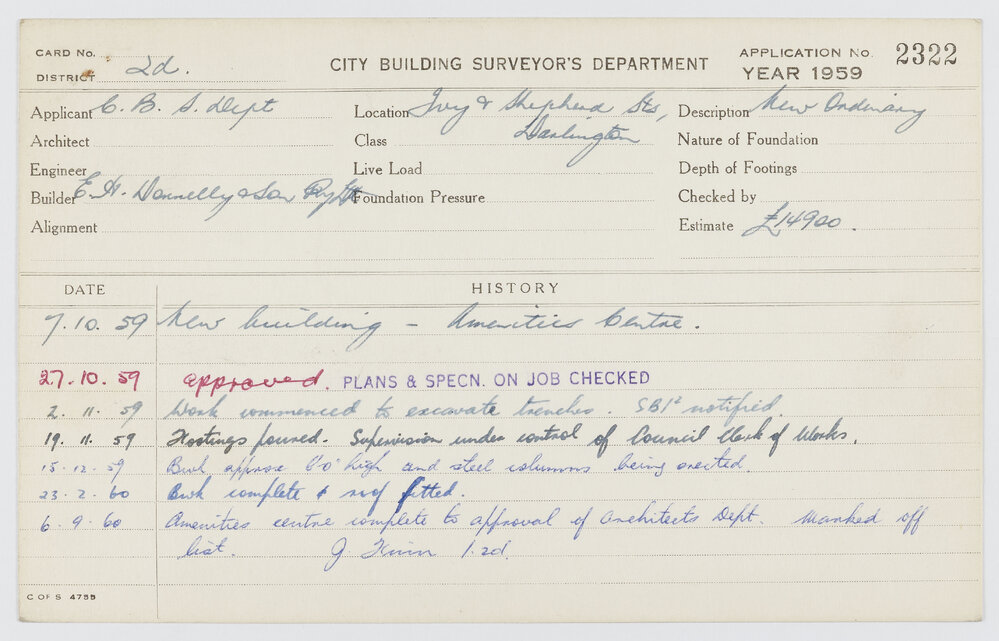 CARD No.
DISTRICT 2d.
CITY BUILDING SURVEYOR'S DEPARTMENT
APPLICATION No. 2322
YEAR 1959
Applicant C. B. S. Dept
Location Ivy & Shepherd Sts,
Darlington
Description New Ordinary
Architect
Class
Nature of Foundation
Engineer
Live Load
Depth of Footings
Builder E. H. Donnelly & Son Pty Ltd
Foundation Pressure
Checked by
Alignment
Estimate £14900.
DATE HISTORY
7.10.59 New building - Amenities Centre.
27.10.59 approved. PLANS & SPECN. ON JOB CHECKED
2.11.59 Work commenced to excavate trenches. notified.
19.11.59 Footings poured. Supervision under control of Council Clerk of Works.
15.12.59 Bwk approx high and steel columns being erected.
23.2.60 Bwk complete & roof fitted.
6.9.60 Amenities centre complete to approval of Architects Dept. Marked off
list. J 2d.
C OF S 4755